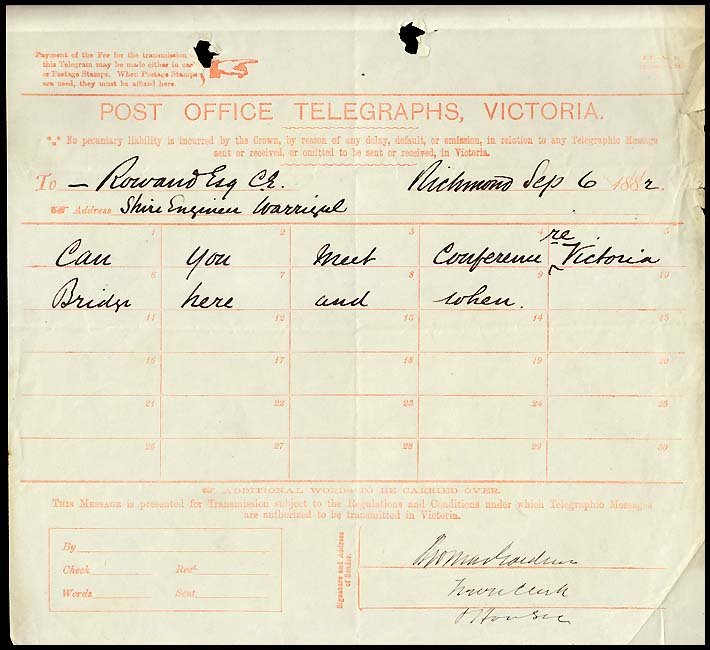 Payment of the Fee for the transmission
this Telegram may be made either in cas
or Postage Stamps. When Postage Stamps
are used, they must be affixed here.
POST OFFICE TELEGRAPHS, VICTORIA.
No pecuniary liability is incurred by the Crown, by reason of any delay, default, or omission, in relation to any Telegraphic Message
sent or received, or omitted to be sent or received, in Victoria.
To — Rowand Esq C.E. Richmond Sep 6 1882.
Address Shire Engineer Warrigul
1 2 3 4 5
Can you meet Conference re Victoria
6 7 8 9 10
Bridge here and when.
11 12 13 14 15
16 17 18 19 20
21 22 23 24 25
26 27 28 29 30
ADDITIONAL WORDS TO BE CARRIED OVER.
THIS MESSAGE is presented for Transmission subject to the Regulations and Conditions under which Telegraphic Messages
are authorized to be transmitted in Victoria.
By
Check Recd.
Words Sent
Signature and Address
of Sender.
Town Clerk